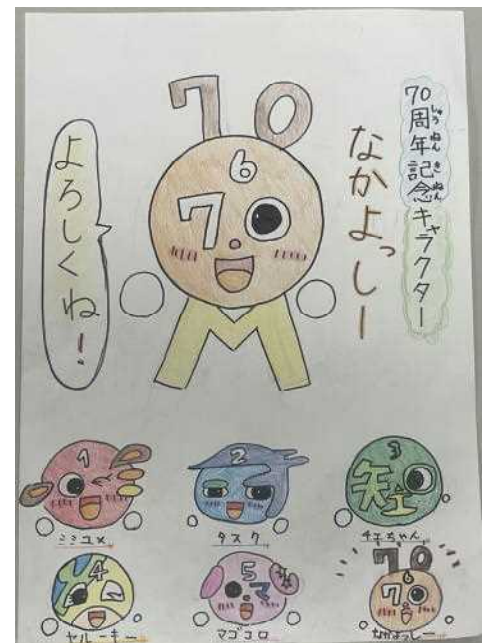 70周年記念キャラクター
しゅうねんきねん
なかよっしー
よろしくね！
70
6
70
M
1
ミミユメ
2
タスク
3
知
チエちゃん
4
ヤルーキー
5
マ
マゴコロ
70
6
70
なかよっしー